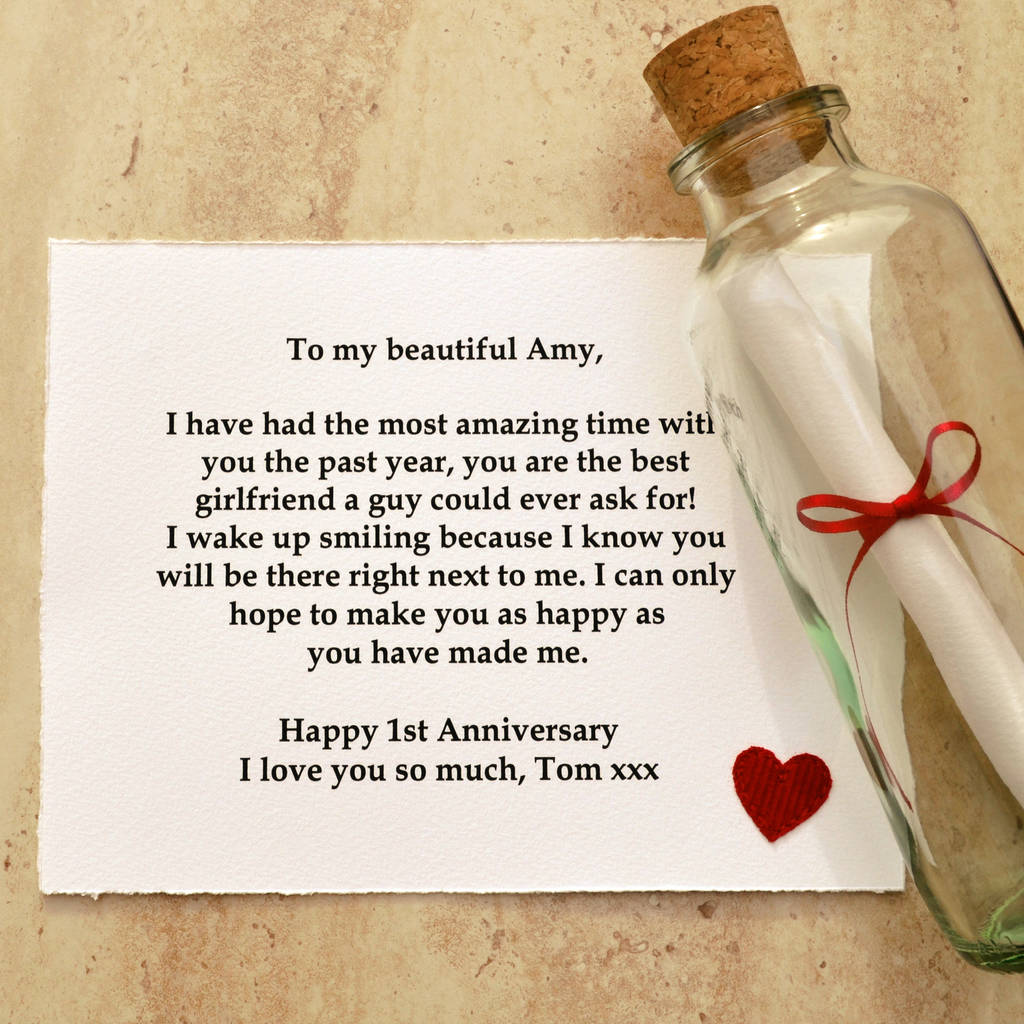 To my beautiful Amy,
I have had the most amazing time with
you the past year, you are the best
girlfriend a guy could ever ask for!
I wake up smiling because I know you
will be there right next to me. I can only
hope to make you as happy as
you have made me.
Happy 1st Anniversary
I love you so much, Tom xxx